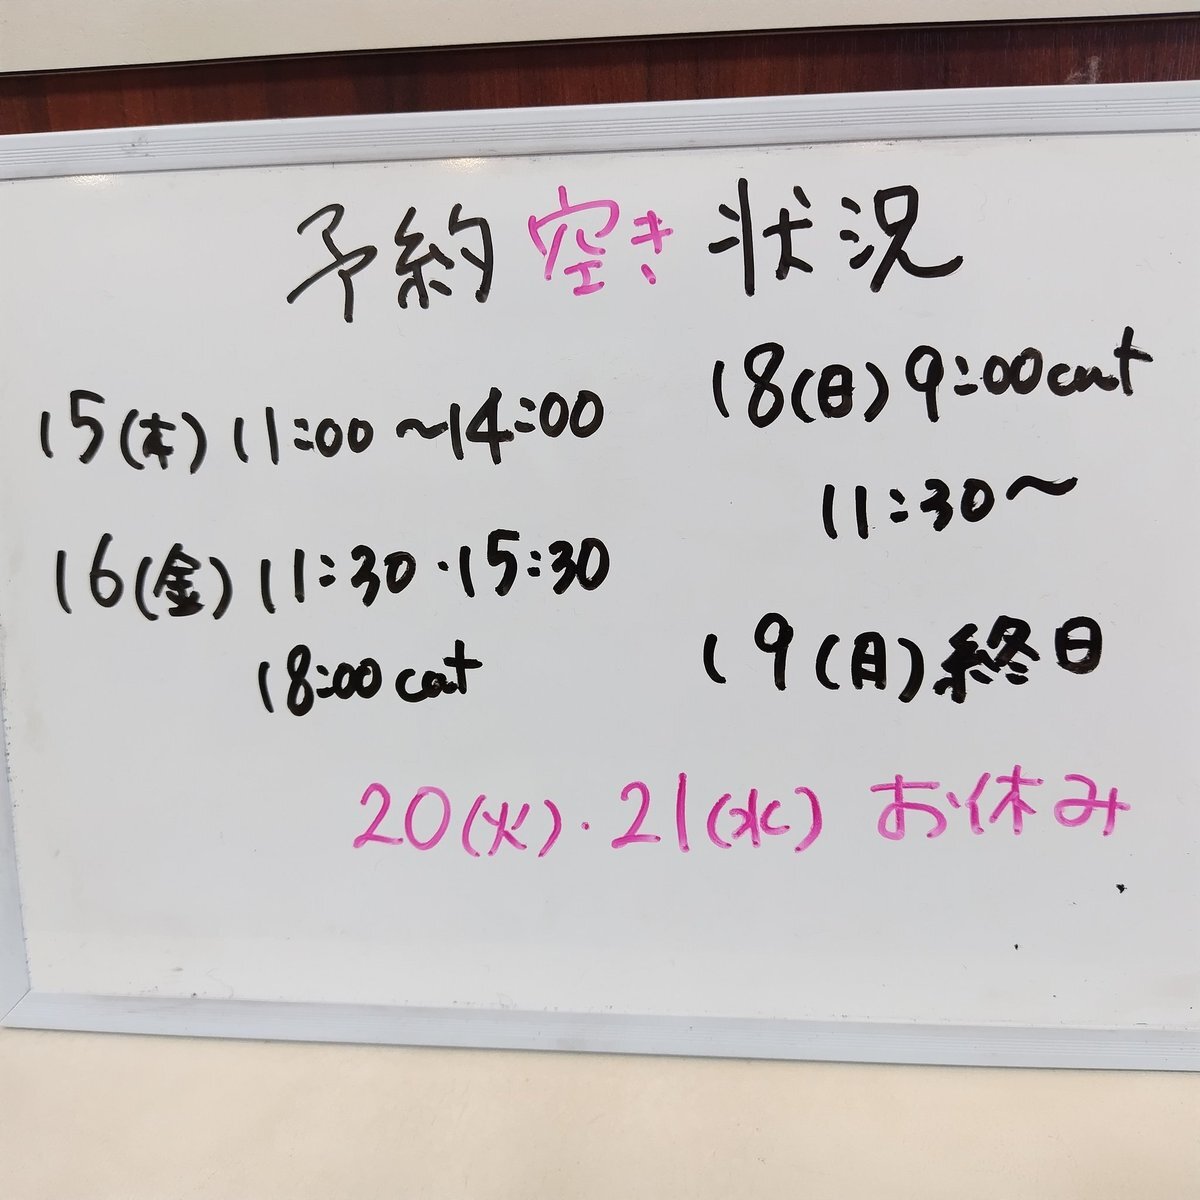 予約空き状況
15(木) 11:00〜14:00
16(金) 11:30・15:30
18:00 cat
18(日) 9:00 cut
11:30〜
19(月) 終日
20(火)・21(水) お休み